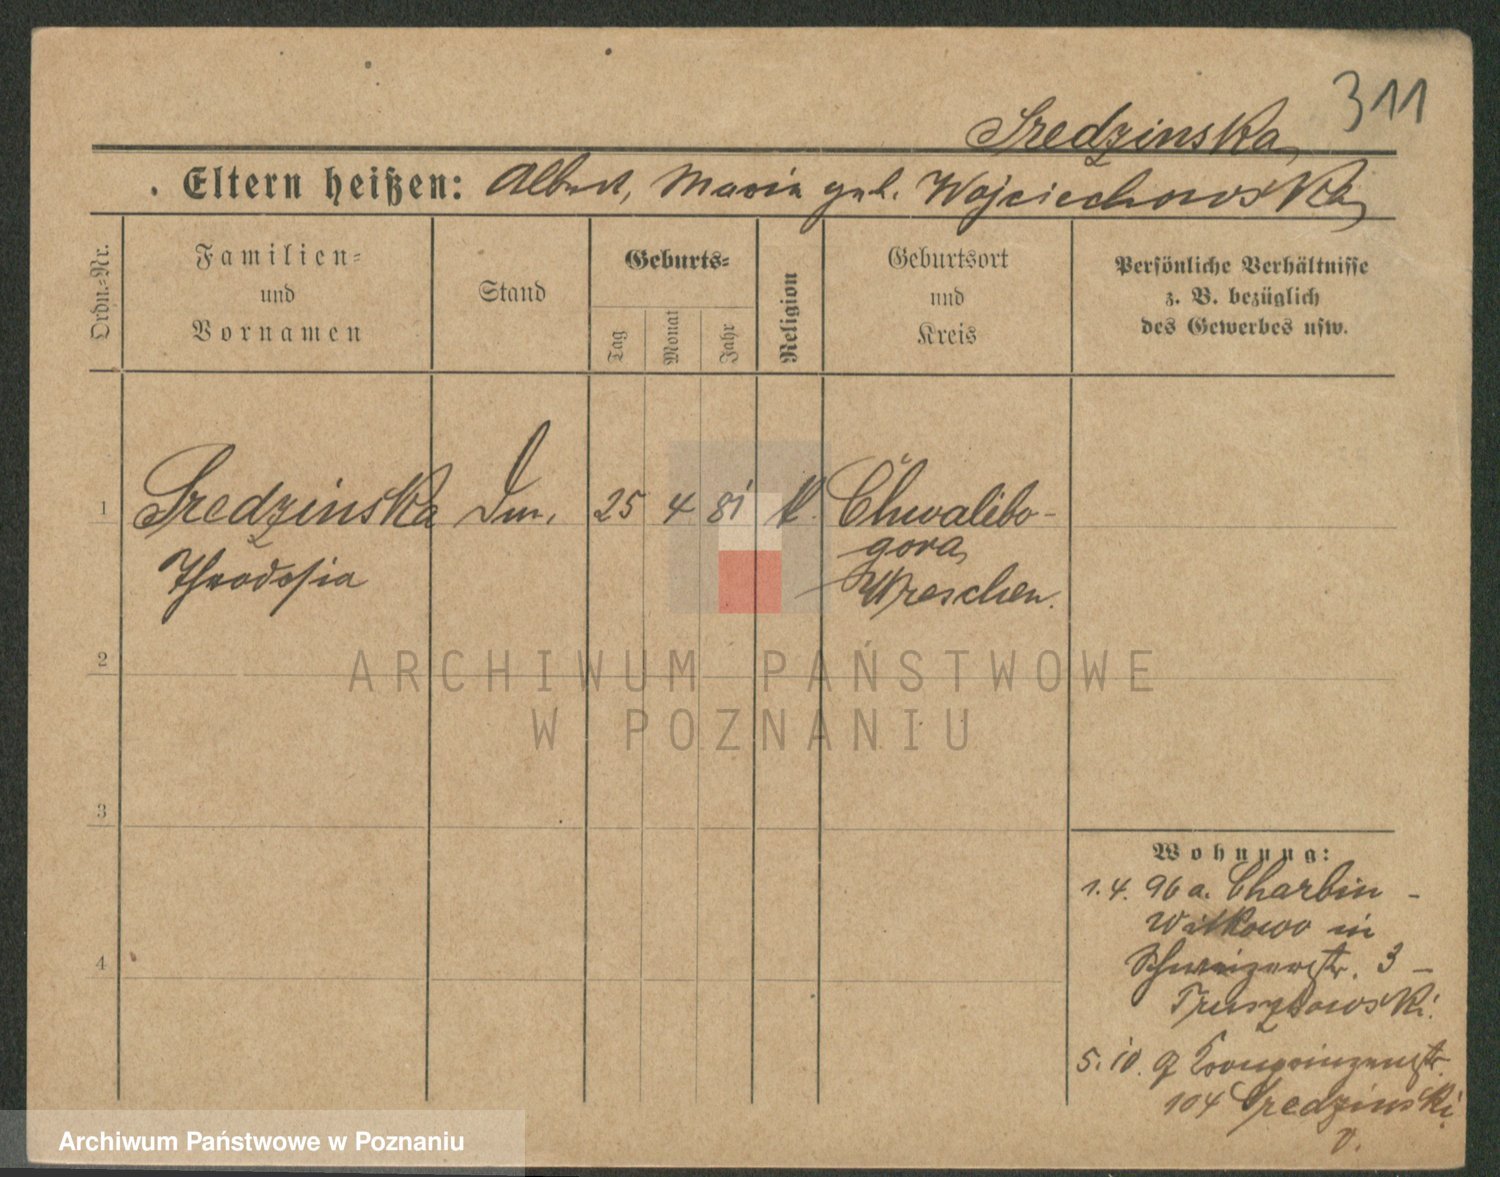 311
Sredzinska,
Eltern heißen: Albert, Maria geb. Wojciechowska,
Ordn.-Nr.
Familien-
und
Vornamen
Stand
Geburts-
Tag
Monat
Jahr
Religion
Geburtsort
und
Kreis
Persönliche Verhältnisse
z. B. bezüglich
des Gewerbes usw.
1 Sredzinska 25 4 81 k. Chwalibo-
gora,
Theodosia Wreschen.
2
ARCHIWUM PAŃSTWOWE
W POZNANIU
3
4
Wohnung:
1.4. 96 a. Charbin -
Witkowo in
Schweizerstr. 3 -
Truszkowski.
5. 10. 9 Kronprinzenstr.
104 Sredzinski
v.
Archiwum Państwowe w Poznaniu